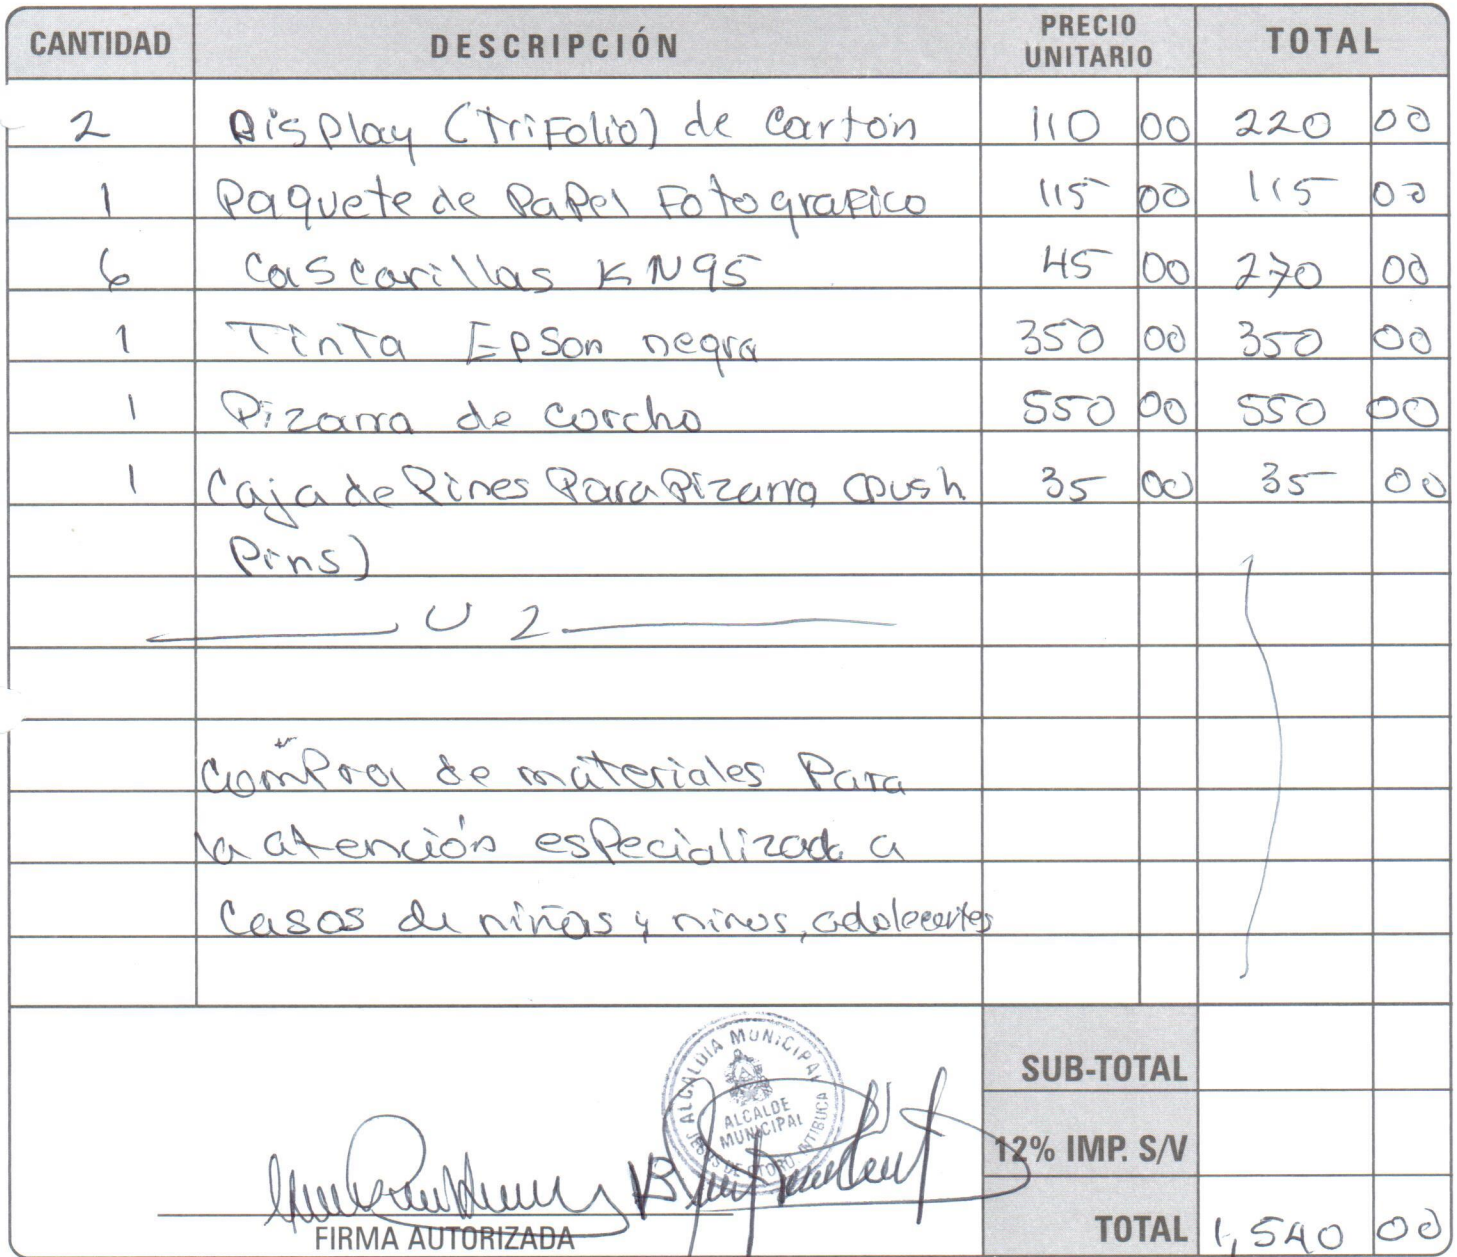 CANTIDAD DESCRIPCIÓN PRECIO UNITARIO TOTAL
2 Display (TriFolio) de carton 110 00 220 00
1 Paquete de Papel Fotografico 115 00 115 00
6 Cascarillas KN95 45 00 270 00
1 Tinta Epson negra 350 00 350 00
1 Pizarra de corcho 550 00 550 00
1 Caja de Pines Para Pizarra (Push 35 00 35 00
Pins)
U 2
Compra de materiales Para
la atención especializada a
Casos de niñas y niños, adolecentes
SUB-TOTAL
12% IMP. S/V
TOTAL 1,540 00
FIRMA AUTORIZADA
ALCALDIA MUNICIPAL
ALCALDE
MUNICIPAL
JESUS DE OTORO INTIBUCA